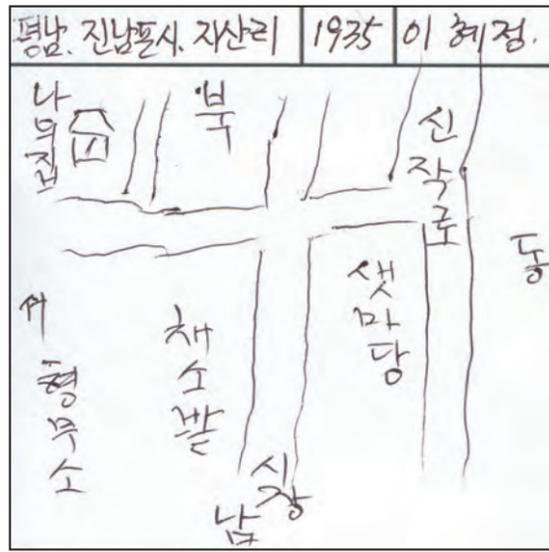 평남. 진남포시. 지산리 1935 이 혜정.
나의집
북
신작로
동
샛마당
서
채소밭
형무소
시장
남